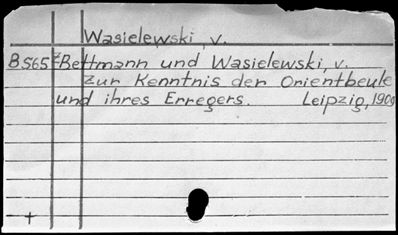 Wasielewski, v.
B 565 z Bettmann und Wasielewski, v.
zur Kenntnis der Orientbeule
und ihres Erregers. Leipzig, 1909
+